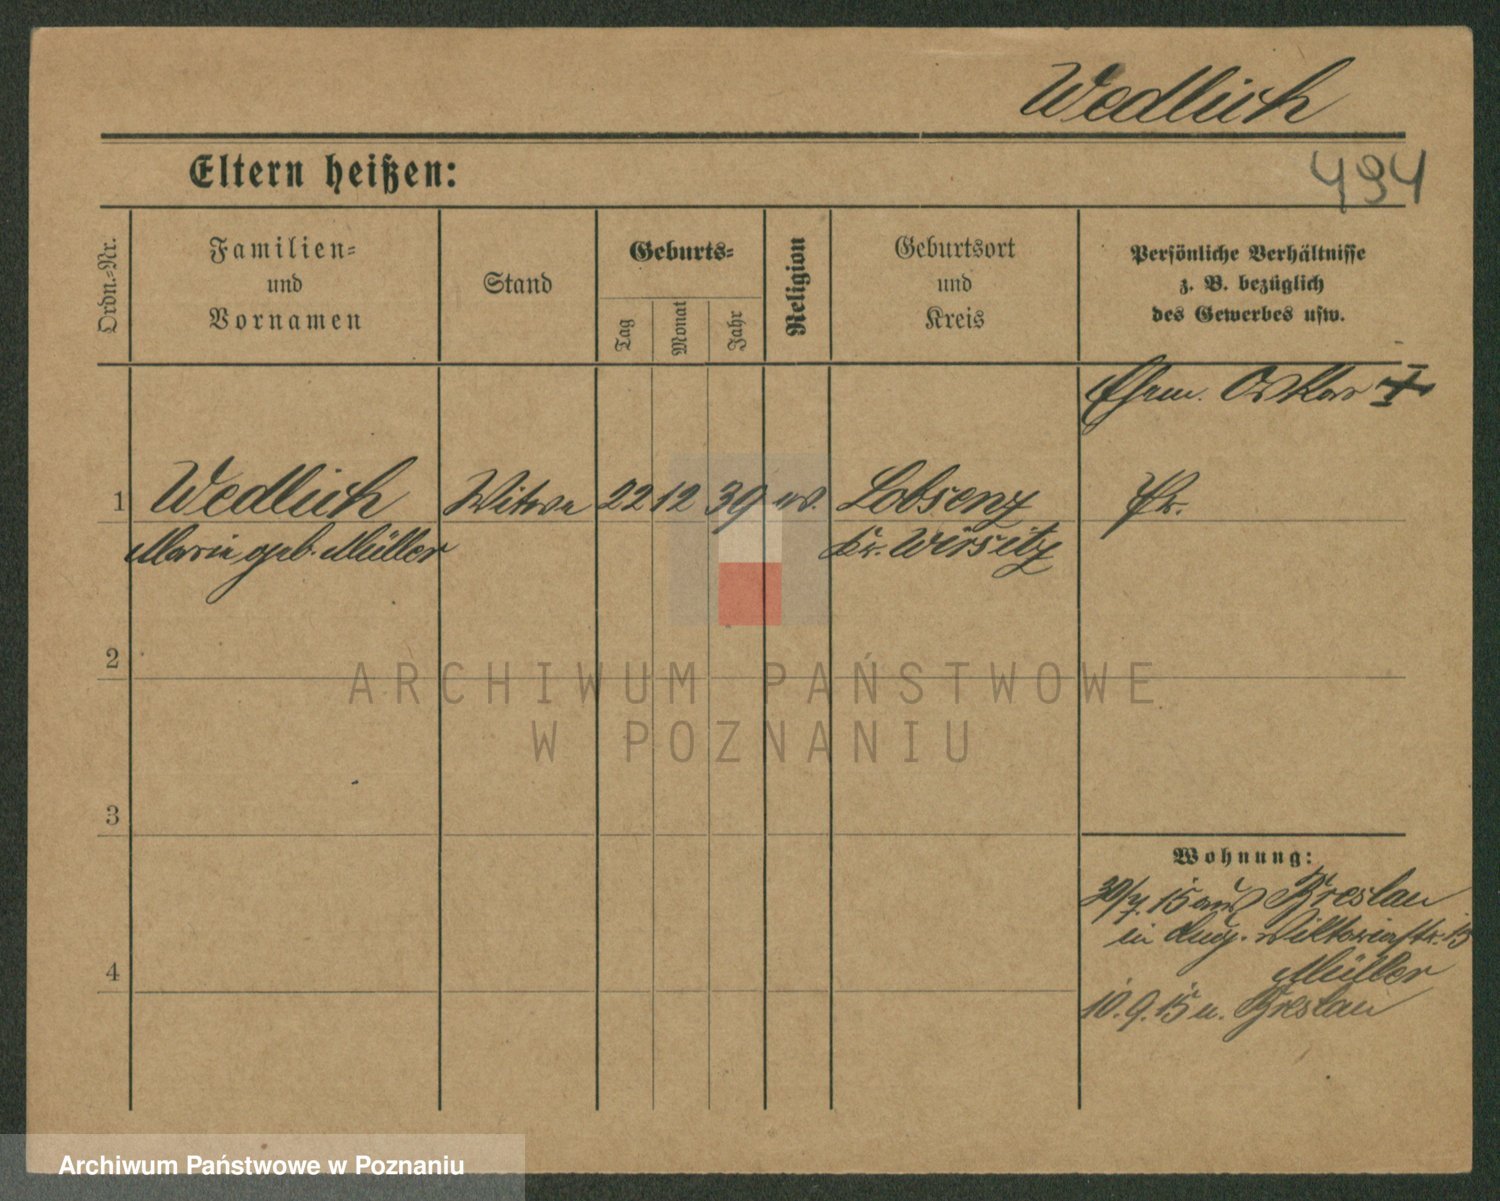 Wedlich
Eltern heißen:
494
Ordn.-Nr.
Familien-
und
Vornamen
Stand
Geburts-
Tag
Monat
Jahr
Religion
Geburtsort
und
Kreis
Persönliche Verhältnisse
z. B. bezüglich
des Gewerbes usw.
Ehem. Oskar
1
Wedlich
Witwe
22
12
39
ev.
Lobsenz
Pr.
Marie geb. Müller
Kr. Wirsitz
2
3
4
Wohnung:
30/7. 15 aus Breslau
in Aug. Viktoriastr. 15
Müller
10. 9. 15 n. Breslau
ARCHIWUM PAŃSTWOWE
W POZNANIU
Archiwum Państwowe w Poznaniu